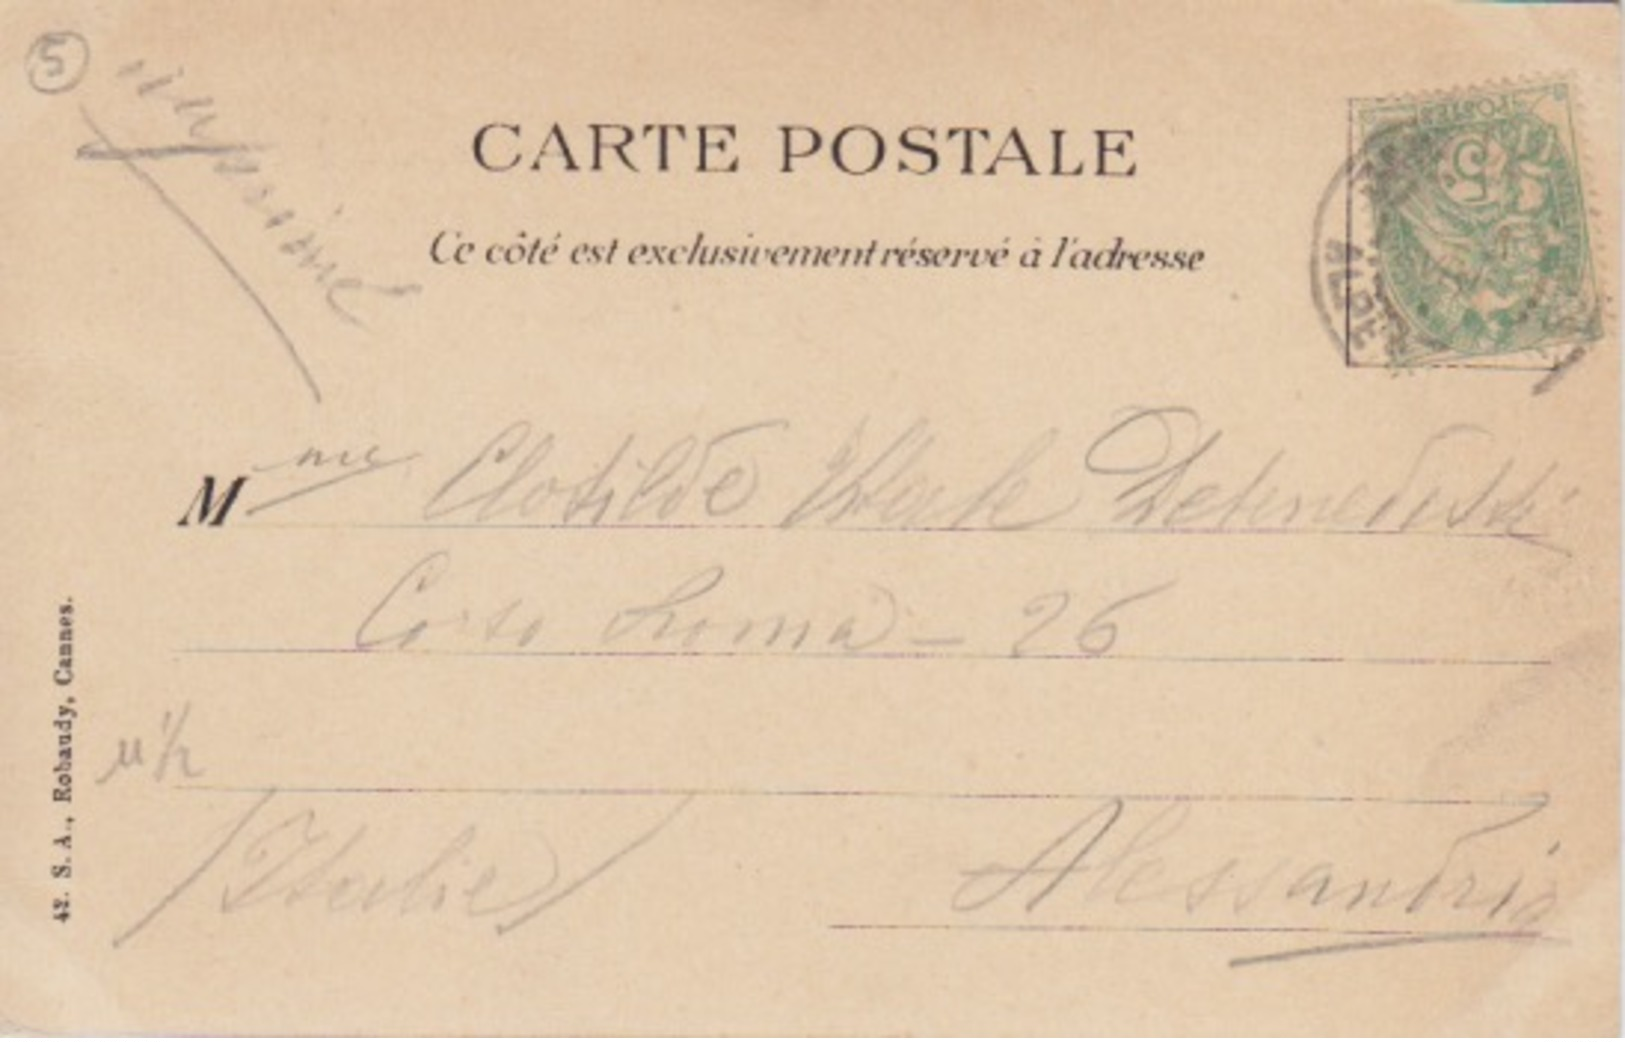 5
imprimé
CARTE POSTALE
POSTES
5
Ce côté est exclusivement réservé à l'adresse
ALPE
Mme Clotilde
Corso Roma - 26
42. S. A., Robaudy, Cannes.
(Italie) Alessandria